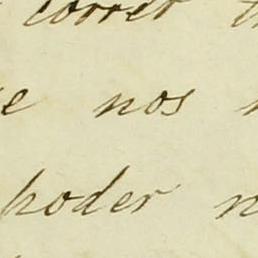 correr
nos
poder